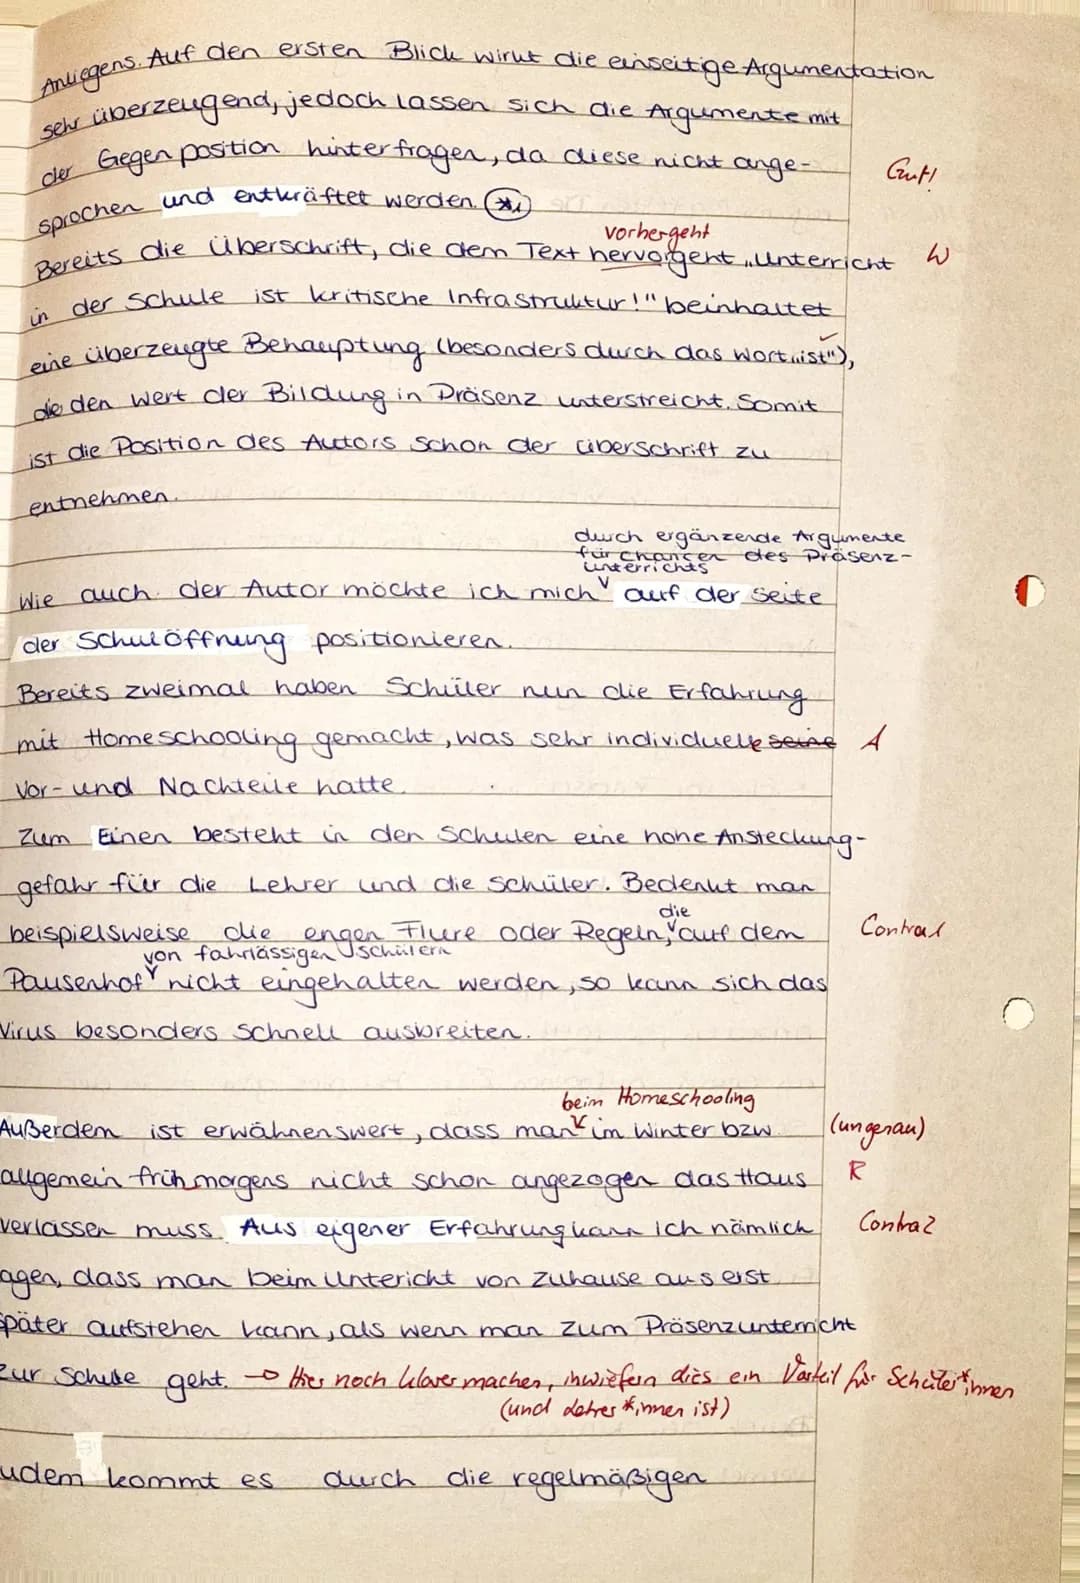 Anliegens. Auf den ersten Blick wirkt die einseitige Argumentation
sehr überzeugend, jedoch lassen sich die Argumente mit
der Gegenposition hinterfragen, da diese nicht ange-
Gut!
sprochen und entkräftet werden. *1
vorhergeht
Bereits die Überschrift, die dem Text hervorgeht „Unterricht
W
in der Schule ist kritische Infrastruktur!" beinhaltet
eine überzeugte Behauptung (besonders durch das Wort „ist"),
die den Wert der Bildung in Präsenz unterstreicht. Somit
ist die Position des Autors schon der Überschrift zu
entnehmen.
durch ergänzende Argumente
für Chancen des Präsenz-
unterrichts
Wie auch der Autor möchte ich mich auf der Seite
der Schulöffnung positionieren.
Bereits zweimal haben Schüler nun die Erfahrung
mit Homeschooling gemacht, was sehr individuelle seine
A
Vor- und Nachteile hatte.
Zum Einen besteht in den Schulen eine hohe Ansteckung-
gefahr für die Lehrer und die Schüler. Bedenkt man
die
beispielsweise die engen Flure oder Regeln, auf dem
Contra1
von fahrlässigen Schülern
Pausenhof nicht eingehalten werden, so kann sich das
Virus besonders schnell ausbreiten.
beim Homeschooling
Außerdem ist erwähnenswert, dass man im Winter bzw.
(ungenau)
allgemein früh morgens nicht schon angezogen das Haus
R
verlassen muss. Aus eigener Erfahrung kann ich nämlich
Contra2
agen, dass man beim Unterricht von Zuhause aus erst
später aufstehen kann, als wenn man zum Präsenzunterricht
zur Schule geht. → Hier noch klarer machen, inwiefern dies ein Vorteil für Schüler*innen
(und Lehrer*innen ist)
udem kommt es durch die regelmäßigen